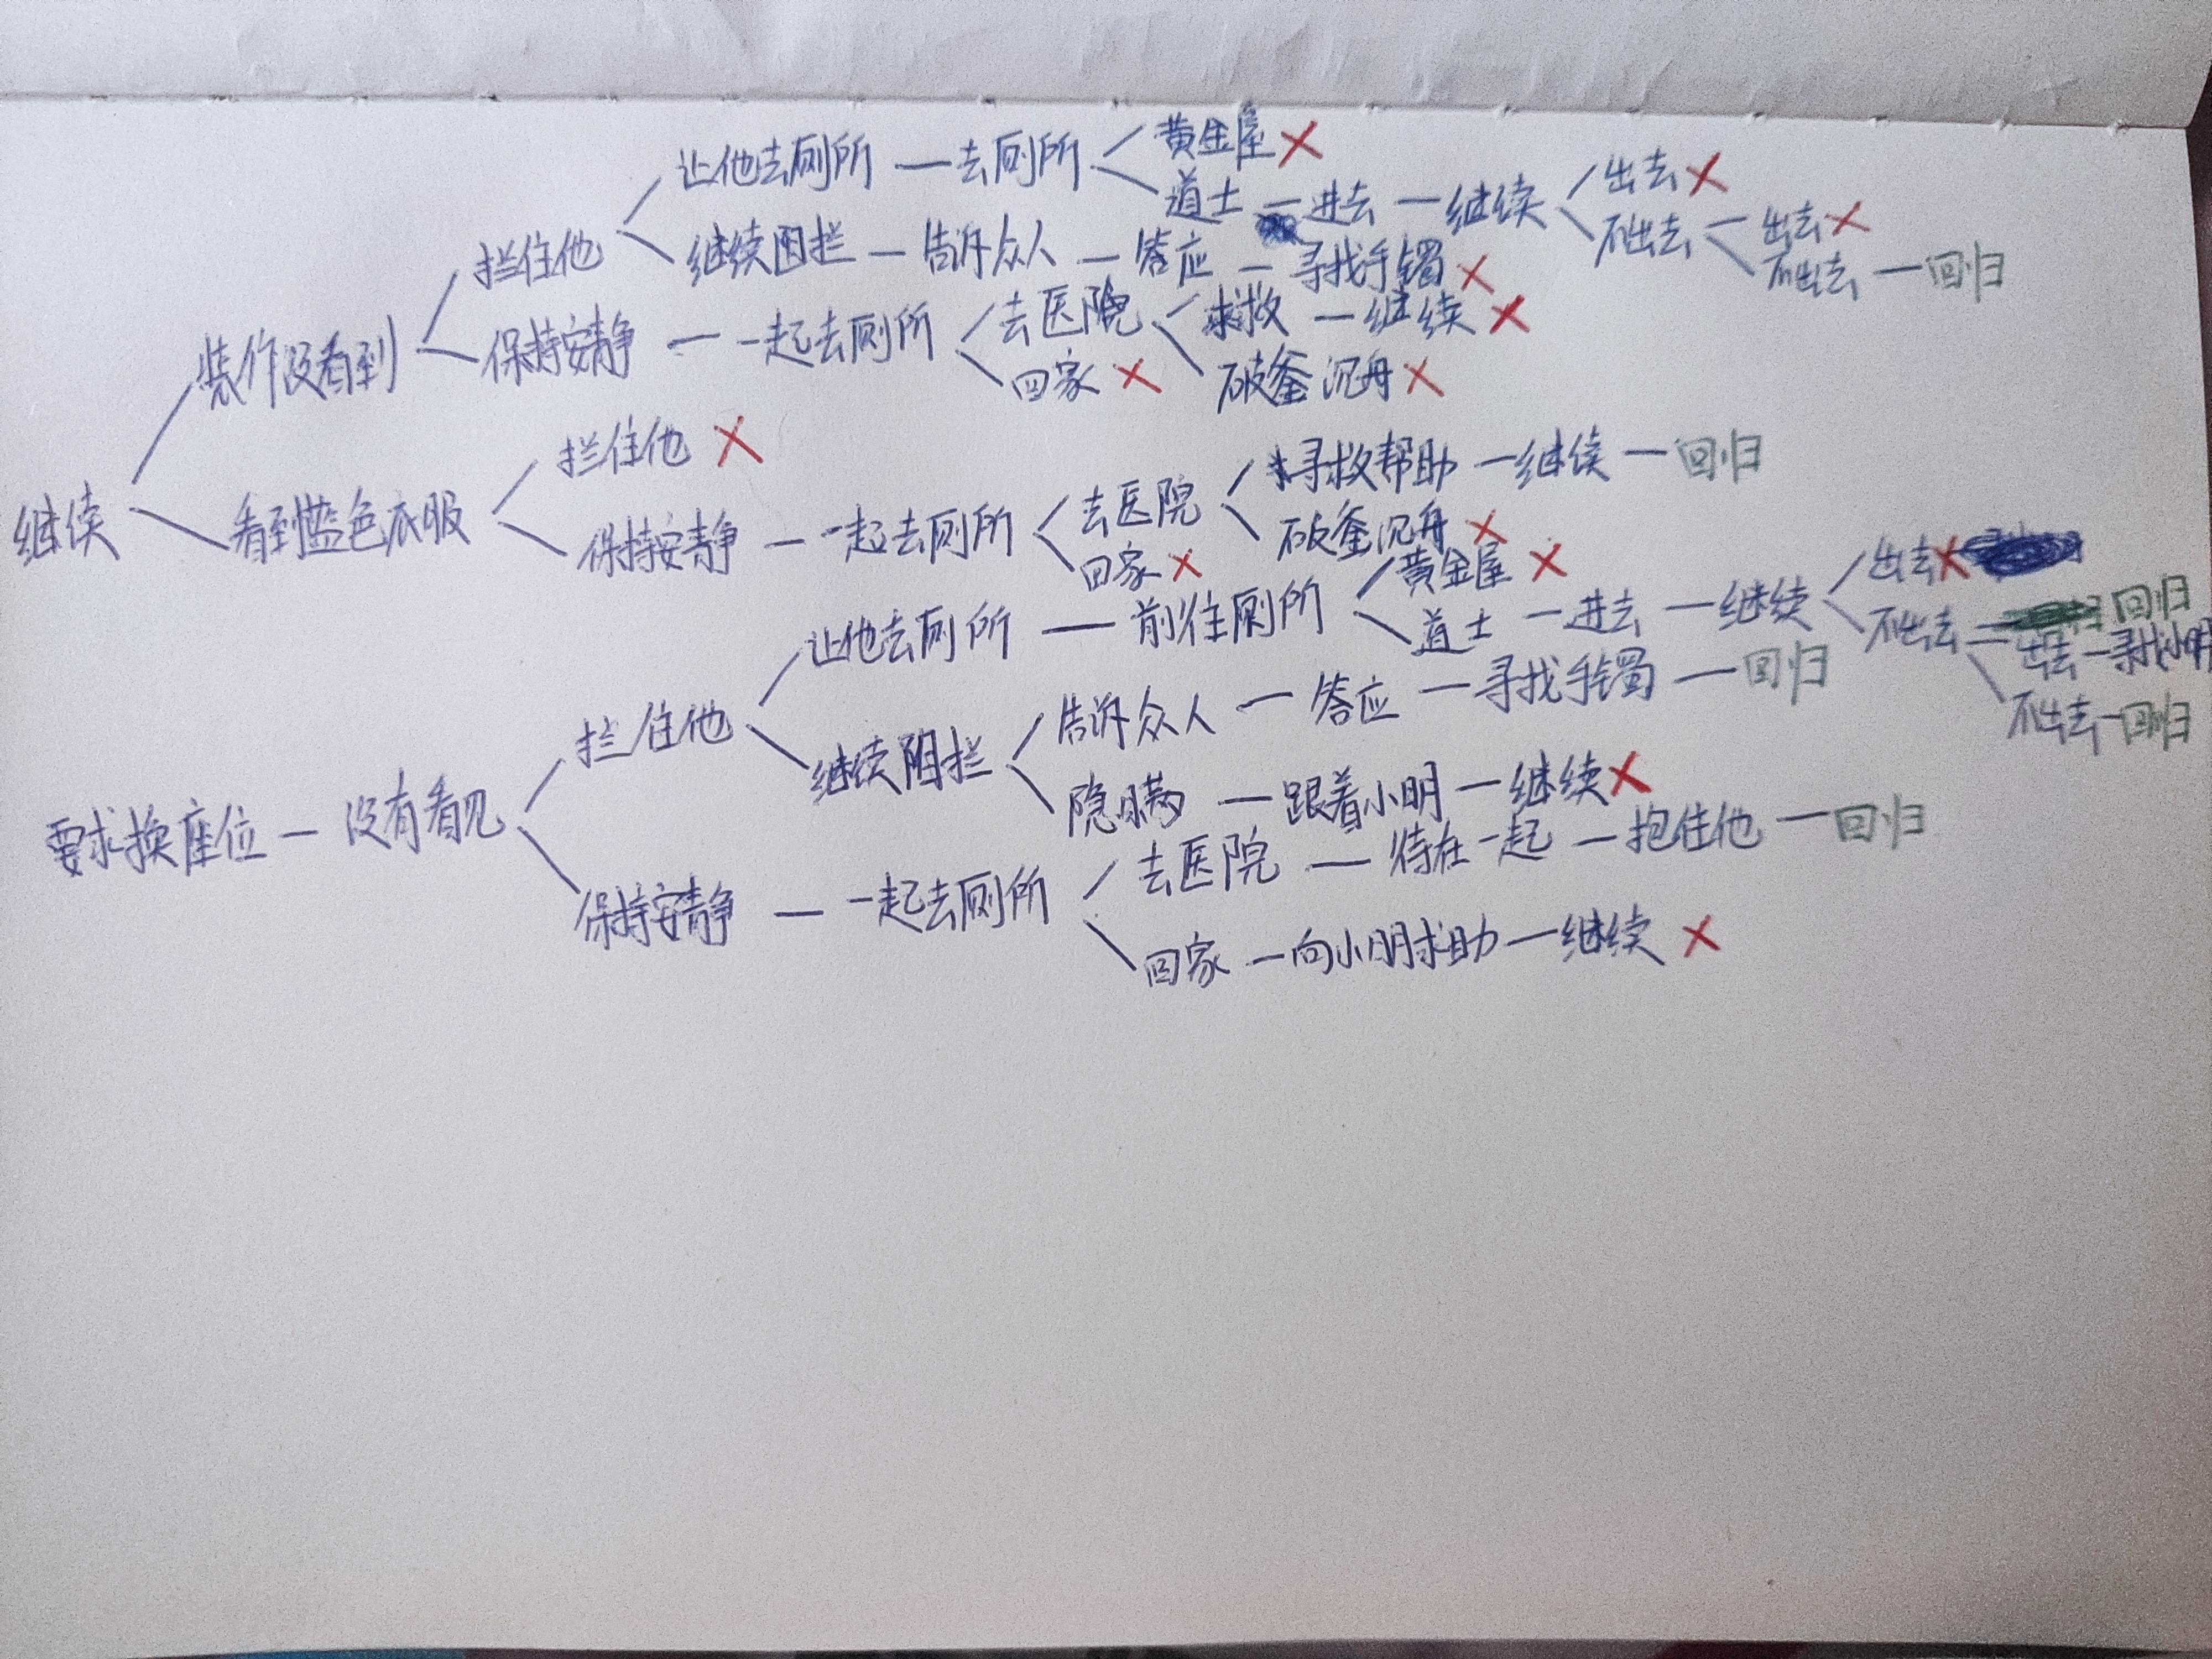 让他去厕所 — 去厕所 黄金屋 ×
道士 — 进去 — 继续 出去 ×
不出去 — 出去 ×
不出去 — 回归
拦住他 继续阻拦 — 告诉众人 — 答应 — 寻找手镯 ×
装作没看到 保持安静 — 一起去厕所 去医院 求救 — 继续 ×
回家 × 破釜沉舟 ×
继续
拦住他 ×
看到蓝色衣服 保持安静 — 一起去厕所 去医院 寻救帮助 — 继续 — 回归
回家 × 破釜沉舟 ×
让他去厕所 — 前往厕所 黄金屋 ×
道士 — 进去 — 继续 出去 ×
不出去 — 回归
出去 — 寻找小明
不出去 — 回归
拦住他 继续阻拦 告诉众人 — 答应 — 寻找手镯 — 回归
隐瞒 — 跟着小明 — 继续 ×
要求换座位 — 没有看见
保持安静 — 一起去厕所 去医院 — 待在一起 — 抱住他 — 回归
回家 — 向小明求助 — 继续 ×